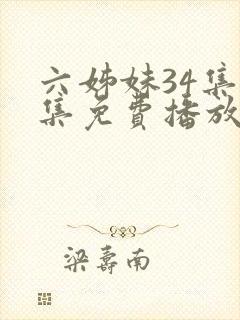 六姊妹34集
集免費播放
梁壽南